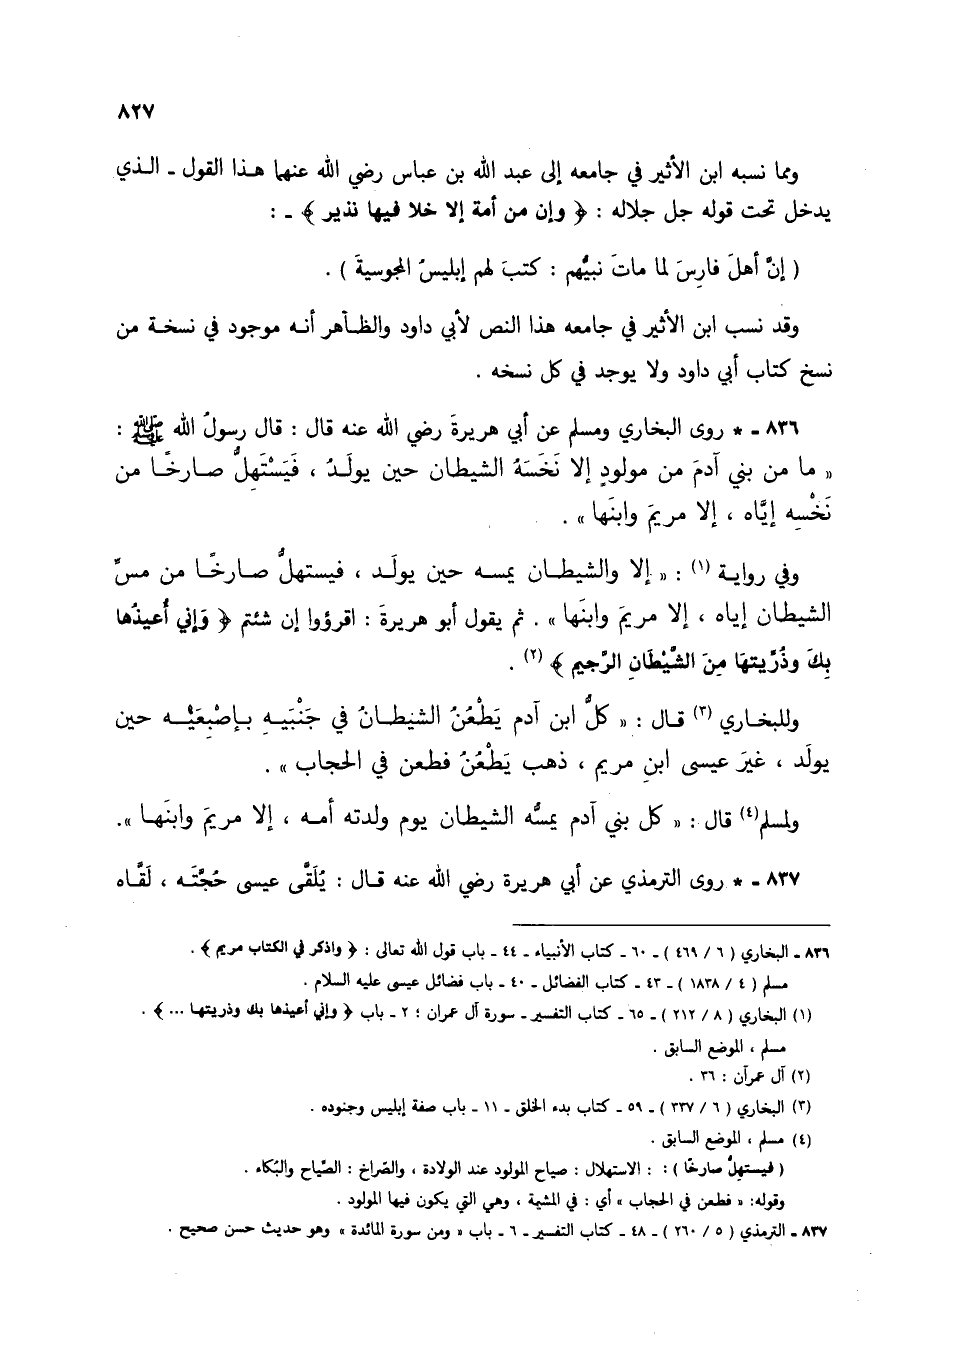 ٨٢٧
ومما نسبه ابن الأثير في جامعه إلى عبد الله بن عباس رضي الله عنهما هـذا القول ـ الـذي
يدخل تحت قوله جل جلاله : ﴿ وإن من أمة إلا خلا فيها نذير ﴾ ـ :
( إنَّ أهلَ فارِسَ لما ماتَ نبيُّهم : كتبَ لهم إبليسُ المجوسيةَ ) .
وقد نسب ابن الأثير في جامعه هذا النص لأبي داود والظـاهر أنـه موجود في نسخـة من
نسخ كتاب أبي داود ولا يوجد في كل نسخه .
٨٣٦ ـ * روى البخاري ومسلم عن أبي هريرةَ رضي الله عنه قال : قال رسولُ الله ﷺ :
« ما من بني آدمَ من مولودٍ إلا نَخَسَهُ الشيطان حين يولَدُ ، فَيَسْتَهِلُّ صـارخًـا من
نَخْسِه إيَّاه ، إلا مريمَ وابنَها » .
وفي روايـة (١) : « إلا والشيطـان يمسـه حين يولَـد ، فيستهلُّ صـارخًـا من مسِّ
الشيطـان إياه ، إلا مريمَ وابنَها » . ثم يقول أبو هريرةَ : اقرؤوا إن شئتم ﴿ وَإني أُعيذُها
بِكَ وذُرِّيتهَا مِنَ الشَّيْطَانِ الرَّجيم ﴾ (٢) .
وللبخاري (٣) قـال : « كلُّ ابن آدم يَطْعُنُ الشيطـانُ في جَنْبَيـهِ بـإصْبعَيْـه حين
يولَد ، غيرَ عيسى ابنِ مريم ، ذهب يَطْعُنُ فطعن في الحجاب » .
ولمسلم(٤) قال : « كل بني آدم يمسُّه الشيطان يوم ولدته أمـه ، إلا مريمَ وابنَهـا ».
٨٣٧ ـ * روى الترمذي عن أبي هريرة رضي الله عنه قـال : يُلَقَّى عيسى حُجَّتَـه ، لَقَّـاه
٨٣٦ ـ البخاري ( ٦ / ٤٦٩ ) ـ ٦٠ ـ كتاب الأنبياء ـ ٤٤ ـ باب قول الله تعالى : ﴿ واذكر في الكتاب مريم ﴾ .
مسلم ( ٤ / ١٨٣٨ ) ـ ٤٣ ـ كتاب الفضائل ـ ٤٠ ـ باب فضائل عيسى عليه السلام .
(١) البخاري ( ٨ / ٢١٢ ) ـ ٦٥ ـ كتاب التفسير ـ سورة آل عمران ؛ ٢ ـ باب ﴿ وإني أعيذها بك وذريتهـا ... ﴾ .
مسلم ، الموضع السابق .
(٢) آل عمرآن : ٣٦ .
(٣) البخاري ( ٦ / ٣٣٧ ) ـ ٥٩ ـ كتاب بدء الخلق ـ ١١ ـ باب صفة إبليس وجنوده .
(٤) مسلم ، الموضع السابق .
( فيستهلُّ صارخًا ) : : الاستهلال : صياح المولود عند الولادة ، والصُّراخ : الصِّياح والبُكاء .
وقوله: « فطعن في الحجاب » أي : في المشية ، وهي التي يكون فيها المولود .
٨٣٧ ـ الترمذي ( ٥ / ٢٦٠ ) ـ ٤٨ ـ كتاب التفسير ـ ٦ ـ باب « ومن سورة المائدة » وهو حديث حسن صحيح .